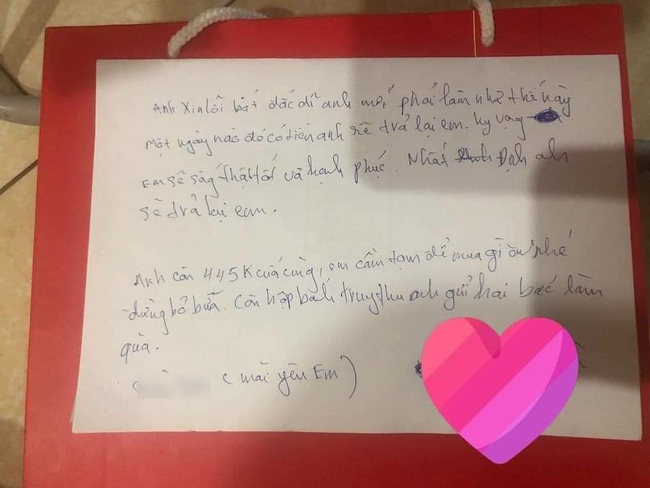 Anh Xin lỗi bất đắc dĩ anh mới phải làm như thế này
Một ngày nào đó có tiền anh sẽ trả lại em. Hy vọng
Em sẽ sống thật tốt và hạnh phúc. Nhất Định anh
sẽ trả lại em.
Anh còn 445K cuối cùng, em cầm tạm để mua gì ăn nhé
đừng bỏ bữa. Còn hộp bánh trung thu anh gửi hai bác làm
quà.
( mãi yêu Em )